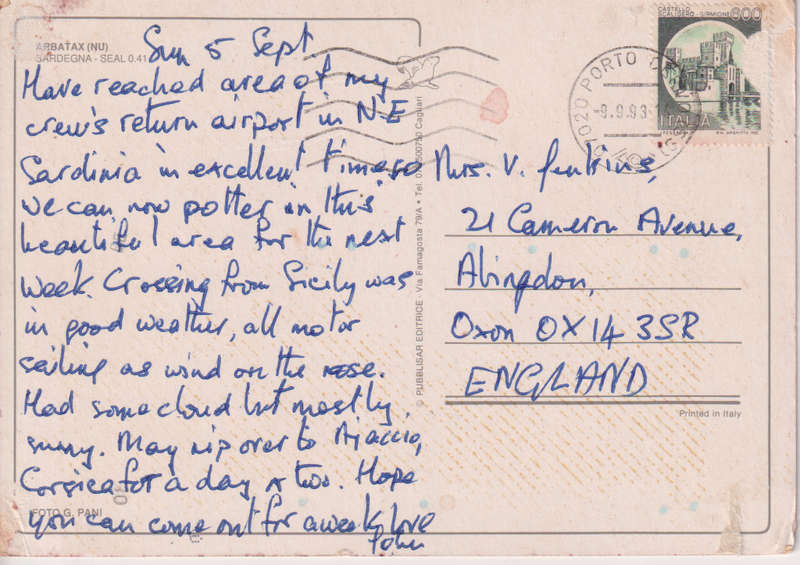 ARBATAX (NU)
SARDEGNA - SEAL 0.41
Sun 5 Sept.
Have reached area of my
crew's return airport in N-E
Sardinia in excellent time so
we can now potter in this
beautiful area for the next
week. Crossing from Sicily was
in good weather, all motor
sailing as wind on the nose.
Had some cloud but mostly
sunny. May nip over to Ajaccio,
Corsica for a day or two. Hope
you can come out for a week love
John
FOTO G. PANI
© PUBBLISAR EDITRICE Via Famagosta 79/A • Tel. Cagliari
CASTELLO
SCALIGERO - SIRMIONE
600
ITALIA
PORTO
-9.9.93
Mrs. V. Jenkins,
21 Cameron Avenue,
Abingdon,
Oxon OX14 3SR
ENGLAND
Printed in Italy